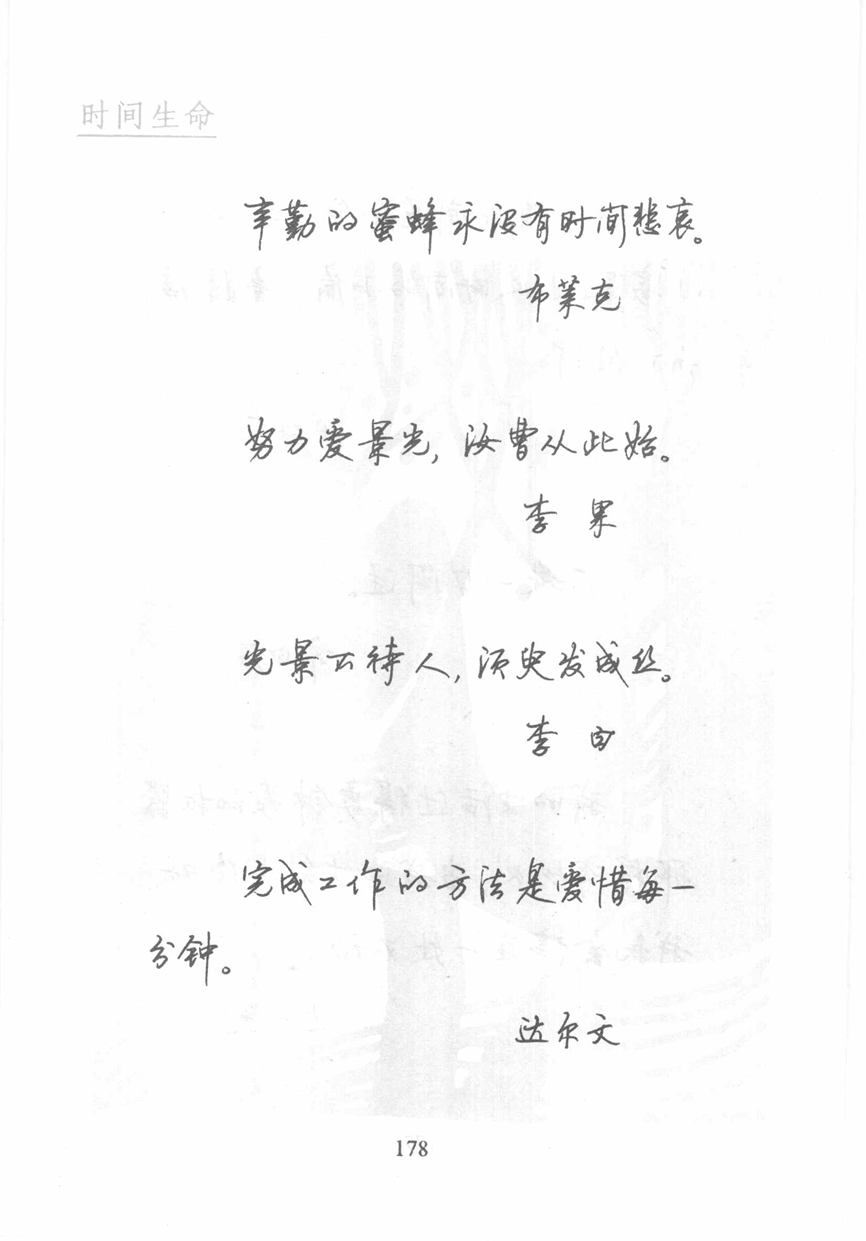 时间生命
辛勤的蜜蜂永没有时间悲哀。
布莱克
努力爱景光，汝曹从此始。
李 果
光景不待人，须臾发成丝。
李 白
完成工作的方法是爱惜每一
分钟。
达尔文
178